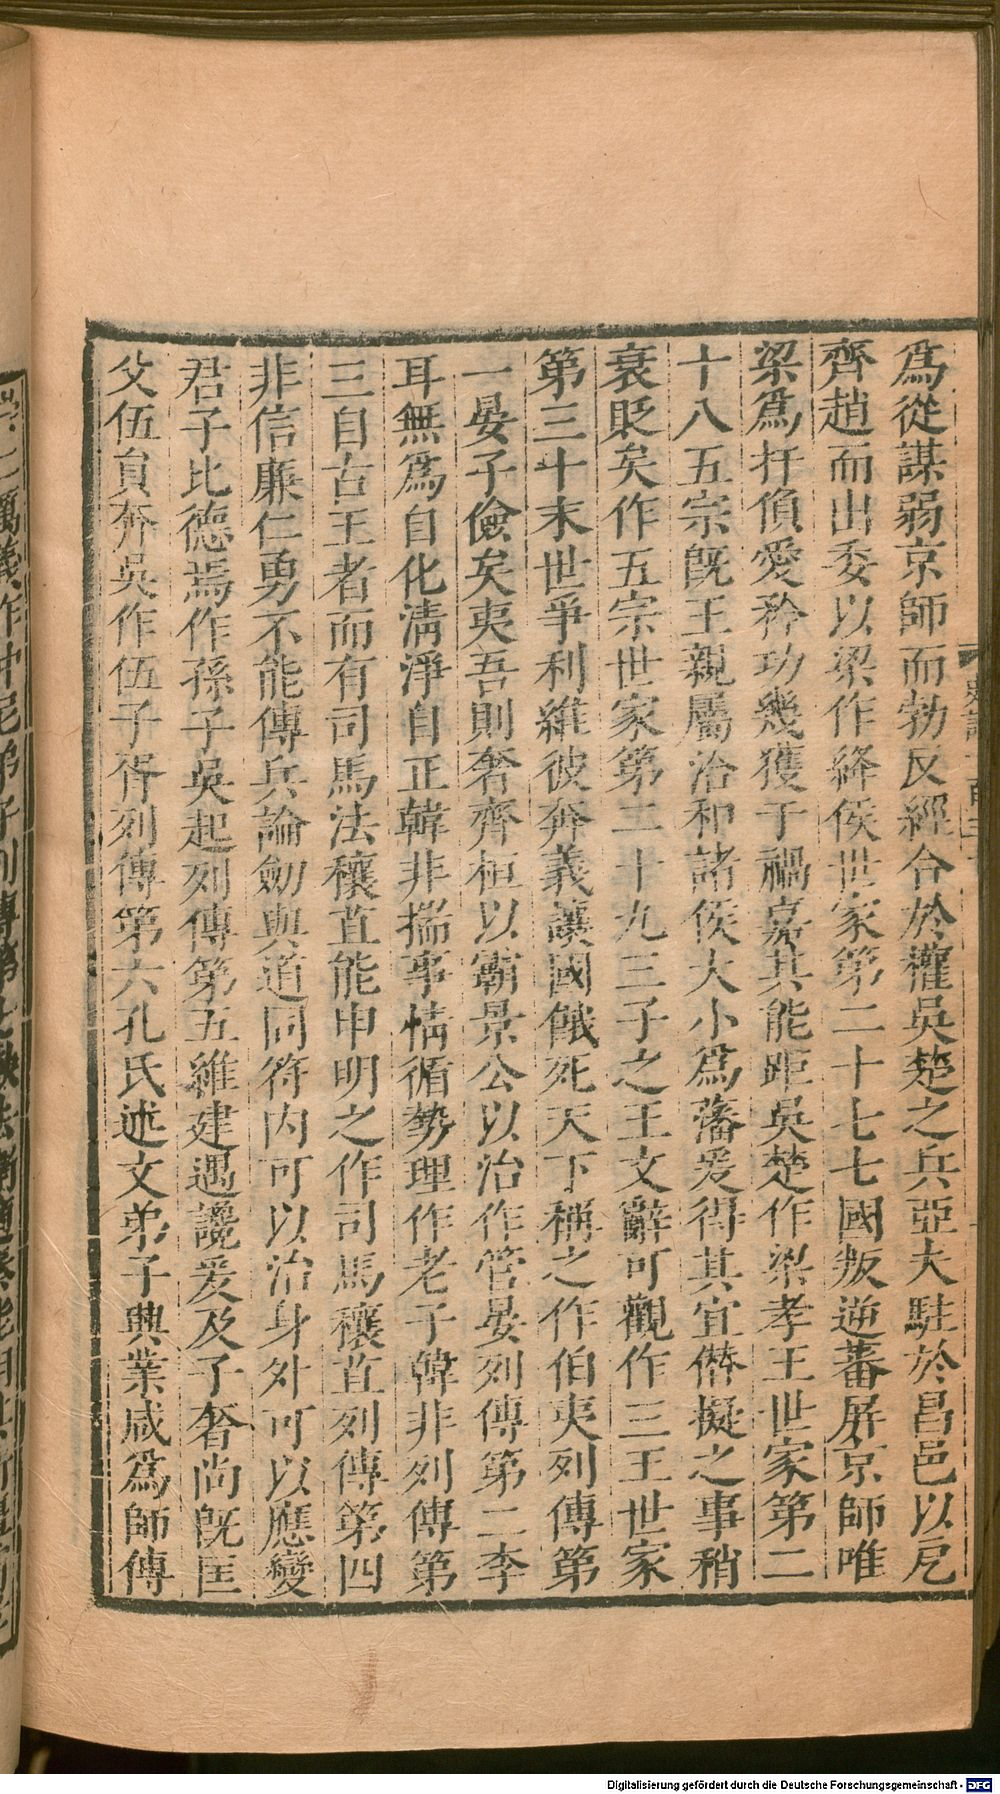 爲從謀弱京師而勃反經合於權吳楚之兵亞夫駐於昌邑以戹
齊趙而出委以梁作絳侯世家第二十七七國叛逆蕃屏京師唯
梁爲扞偩愛矜功幾獲于禍嘉其能距吳楚作梁孝王世家第二
十八五宗旣王親屬洽和諸侯大小爲藩爰得其宜僭擬之事稍
衰貶矣作五宗世家第二十九三子之王文辭可觀作三王世家
第三十末世爭利維彼奔義讓國餓死天下稱之作伯夷列傳第
一晏子儉矣夷吾則奢齊桓以霸景公以治作管晏列傳第二李
耳無爲自化淸淨自正韓非揣事情循勢理作老子韓非列傳第
三自古王者而有司馬法穰苴能申明之作司馬穰苴列傳第四
非信廉仁勇不能傳兵論劒與道同符內可以治身外可以應變
君子比德焉作孫子吳起列傳第五維建遇讒爰及子奢尚旣匡
父伍員奔吳作伍子胥列傳第六孔氏述文弟子興業咸爲師傅
Digitalisierung gefördert durch die Deutsche Forschungsgemeinschaft - DFG